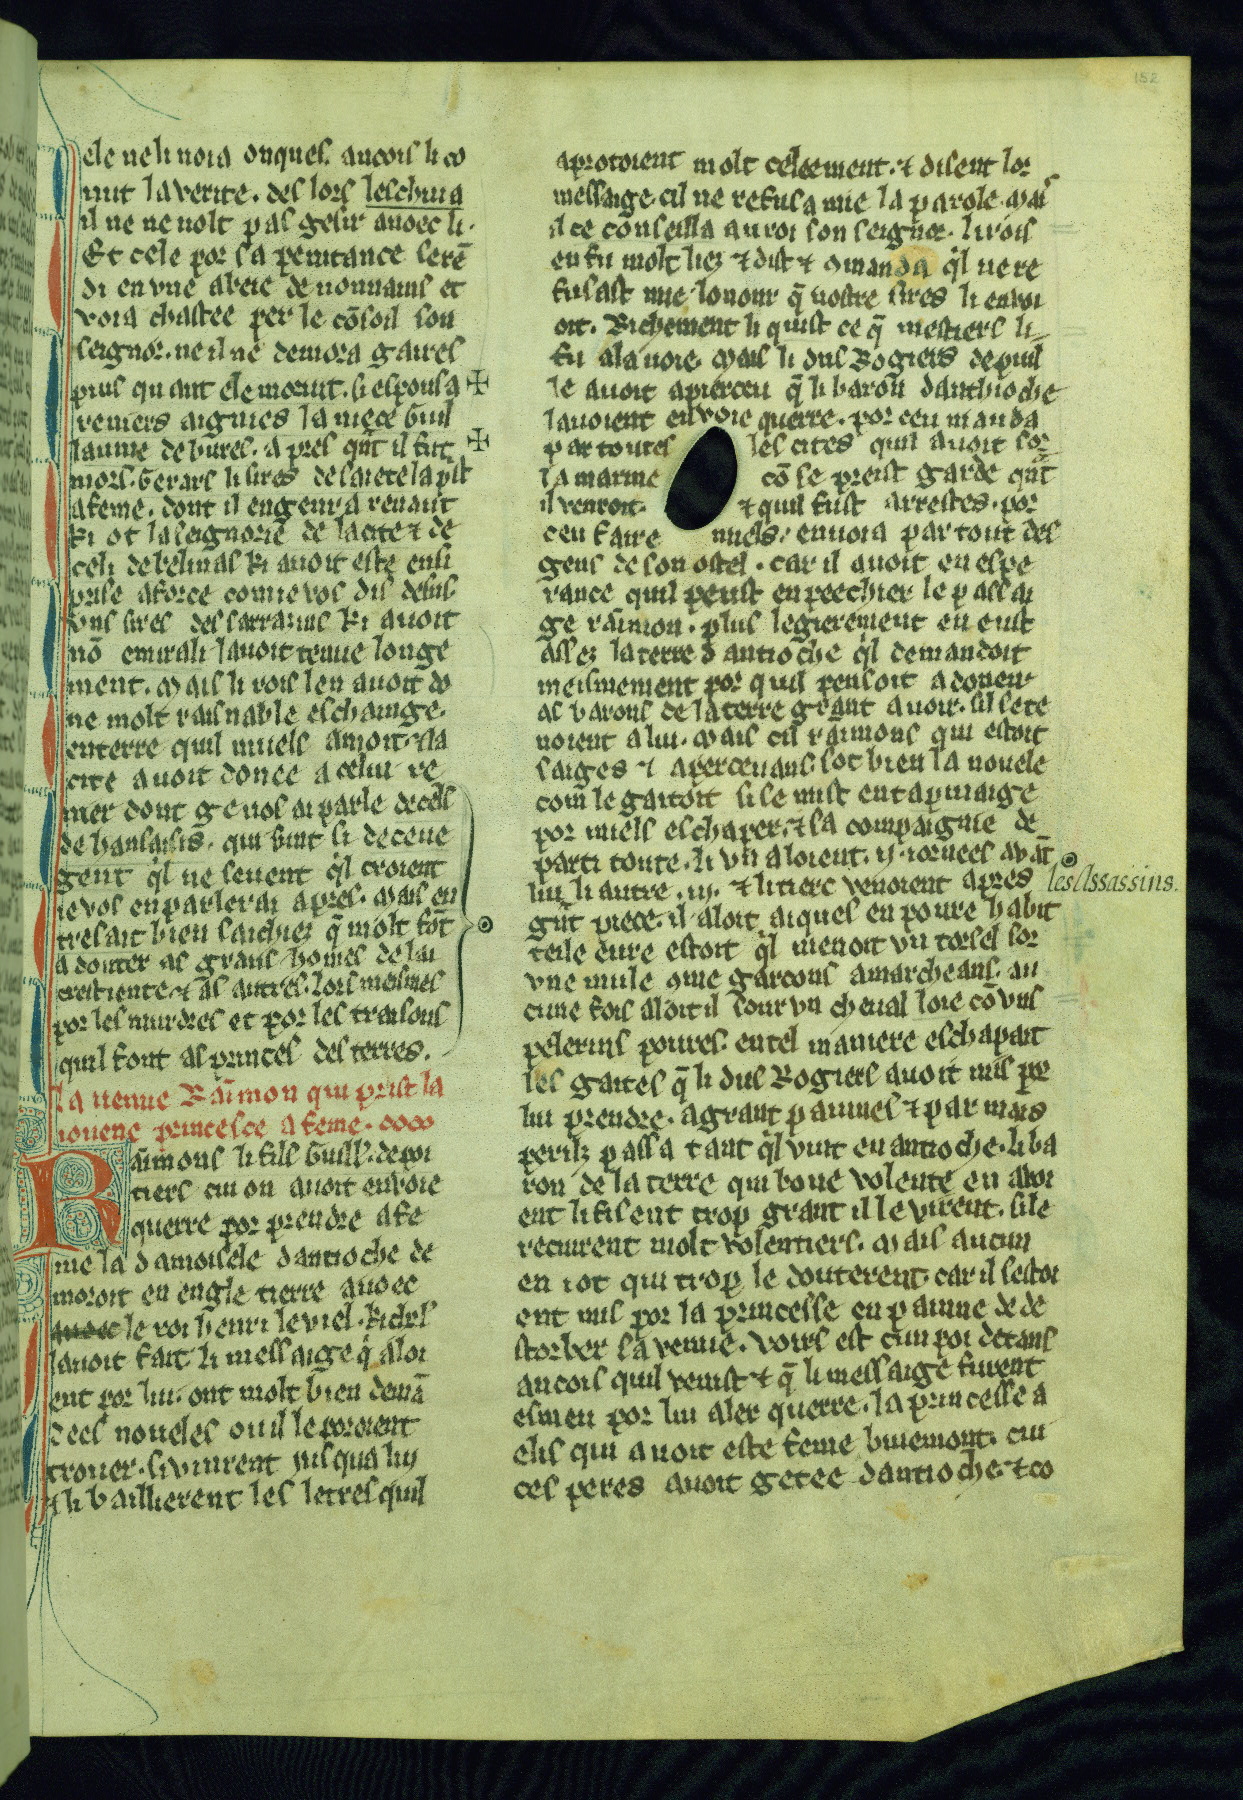 152
ele ne li noia onques. ancois li co
nut la verite. des lors leschiua
il ne ne uolt pas gesir auoec li.
Et cele por sa penitance serẽ
di en vne abeie de nonnains et
voia chastee per le cõsoil son
seignor. ne il ne demora gaires
plus quant ele morut. si espousa
reniers aignies la niece Guil
laume de bures. apres qñt il fut
mors. Gerars li sires de saiete la pⁱst
a feme. dont il engenra renaut
ki ot la seignorie de la cite ⁊ de
celi de belinas ki auoit este ensi
prise a force comme vos dis desus.
vns sires des sarrazins ki auoit
nõ emirali lauoit tenue longe
ment. Mais li rois len auoit do
ne molt raisnable eschainge.
en terre quil miels amoit. ⁊ la
cite auoit donee a celui re
nier dont ge uos ai parle de ces
de hausasis. qui sunt si deceue
gent qͥl ne seuent qͥl croient
ie vos en parlerai apres. Mais en
tresait bien sachiez q̃ molt fõt
a douter as grans homes de la
crestiente ⁊ as autres. lors meismes
por les murdres et por les traisons
quil font as princes des terres.
la uenue Raimon qui prist la
iouene princesce a feme.
Raimons li fils Guill. de poi
tiers cui on auoit enuoie
querre por prendre a fe
me la damoisele dantioche de
moroit en engle tierre auoec
auoec le roi henri le viel. ki chrs
lauoit fait li messaige q̃ aloi
ent por lui. ont molt bien demã
dees noueles ou il le poroient
trouer. si vinrent iusqua lui
⁊ li baillierent les letres quil
aprotoient molt celeement. ⁊ disent lor
messaige. cil ne refusa mie la parole. Mais
il ce conseilla au roi son seignor. li rois
en fu molt liez ⁊ dist ⁊ 9manda qͥl ne re
fusast mie lonour q̃ nostre sires li enuoi
oit. Richement li quist ce q̃ mestiers li
fu a la uoie. Mais li dus Rogiers de puil
le auoit aperceu q̃ li baron danthioche
lauoient envoie querre. por ceu manda
par toutes les cites quil auoit sor
la marine cõ se preist garde qñt
il venroit. ⁊ quil fust arrestes. por
ceu faire miels. enuoia par tout des
gens de son ostel. car il auoit en espe
rance quil peust enpeechier le passai
ge raimon. plus legierement en eust
assez la terre d antioche qͥl demandoit
meismement por quil pensoit a doneir
as barons de la terre grant auoir. sil se te
noient a lui. Mais cil raimons qui estoit
saiges ⁊ aperceuans. sot bien la nouele
com le gaitoit si se mist en tapinaige
por miels eschaper. ⁊ sa compaignie de
parti toute. li vn aloient. ij. iornees auãt
lui. li autre. iij. ⁊ li tierc venoient apres
gñt piece. il aloit aiques en poure habit
teile eure estoit qͥl menoit vn torsel sor
vne mule 9me garcons a marcheans. au
cune fois aloit il sour vn cheual loie cõ vns
pelerins poures. en tel maniere eschapait
les gaites q̃ li dus Rogiers auoit mis por
lui prendre. a grant paines ⁊ par mais
perilz passa tant qͥl vint en antioche. li ba
ron de la terre qui bone volente en auoi
ent li fisent trop grant il le virent. si le
recurent molt volentiers. Mais aucun
en i ot qui trop le douterent. car il sestoi
ent mis por la princesse en paine de de
storber sa venue. voirs est cun poi detans
ancois quil venist ⁊ q̃ li messaige furent
esmeu por lui aler querre. la princesse a
elis qui auoit este feme buiemont. cui
ces peres auoit getee dantioche. ⁊ co
les Assassins.